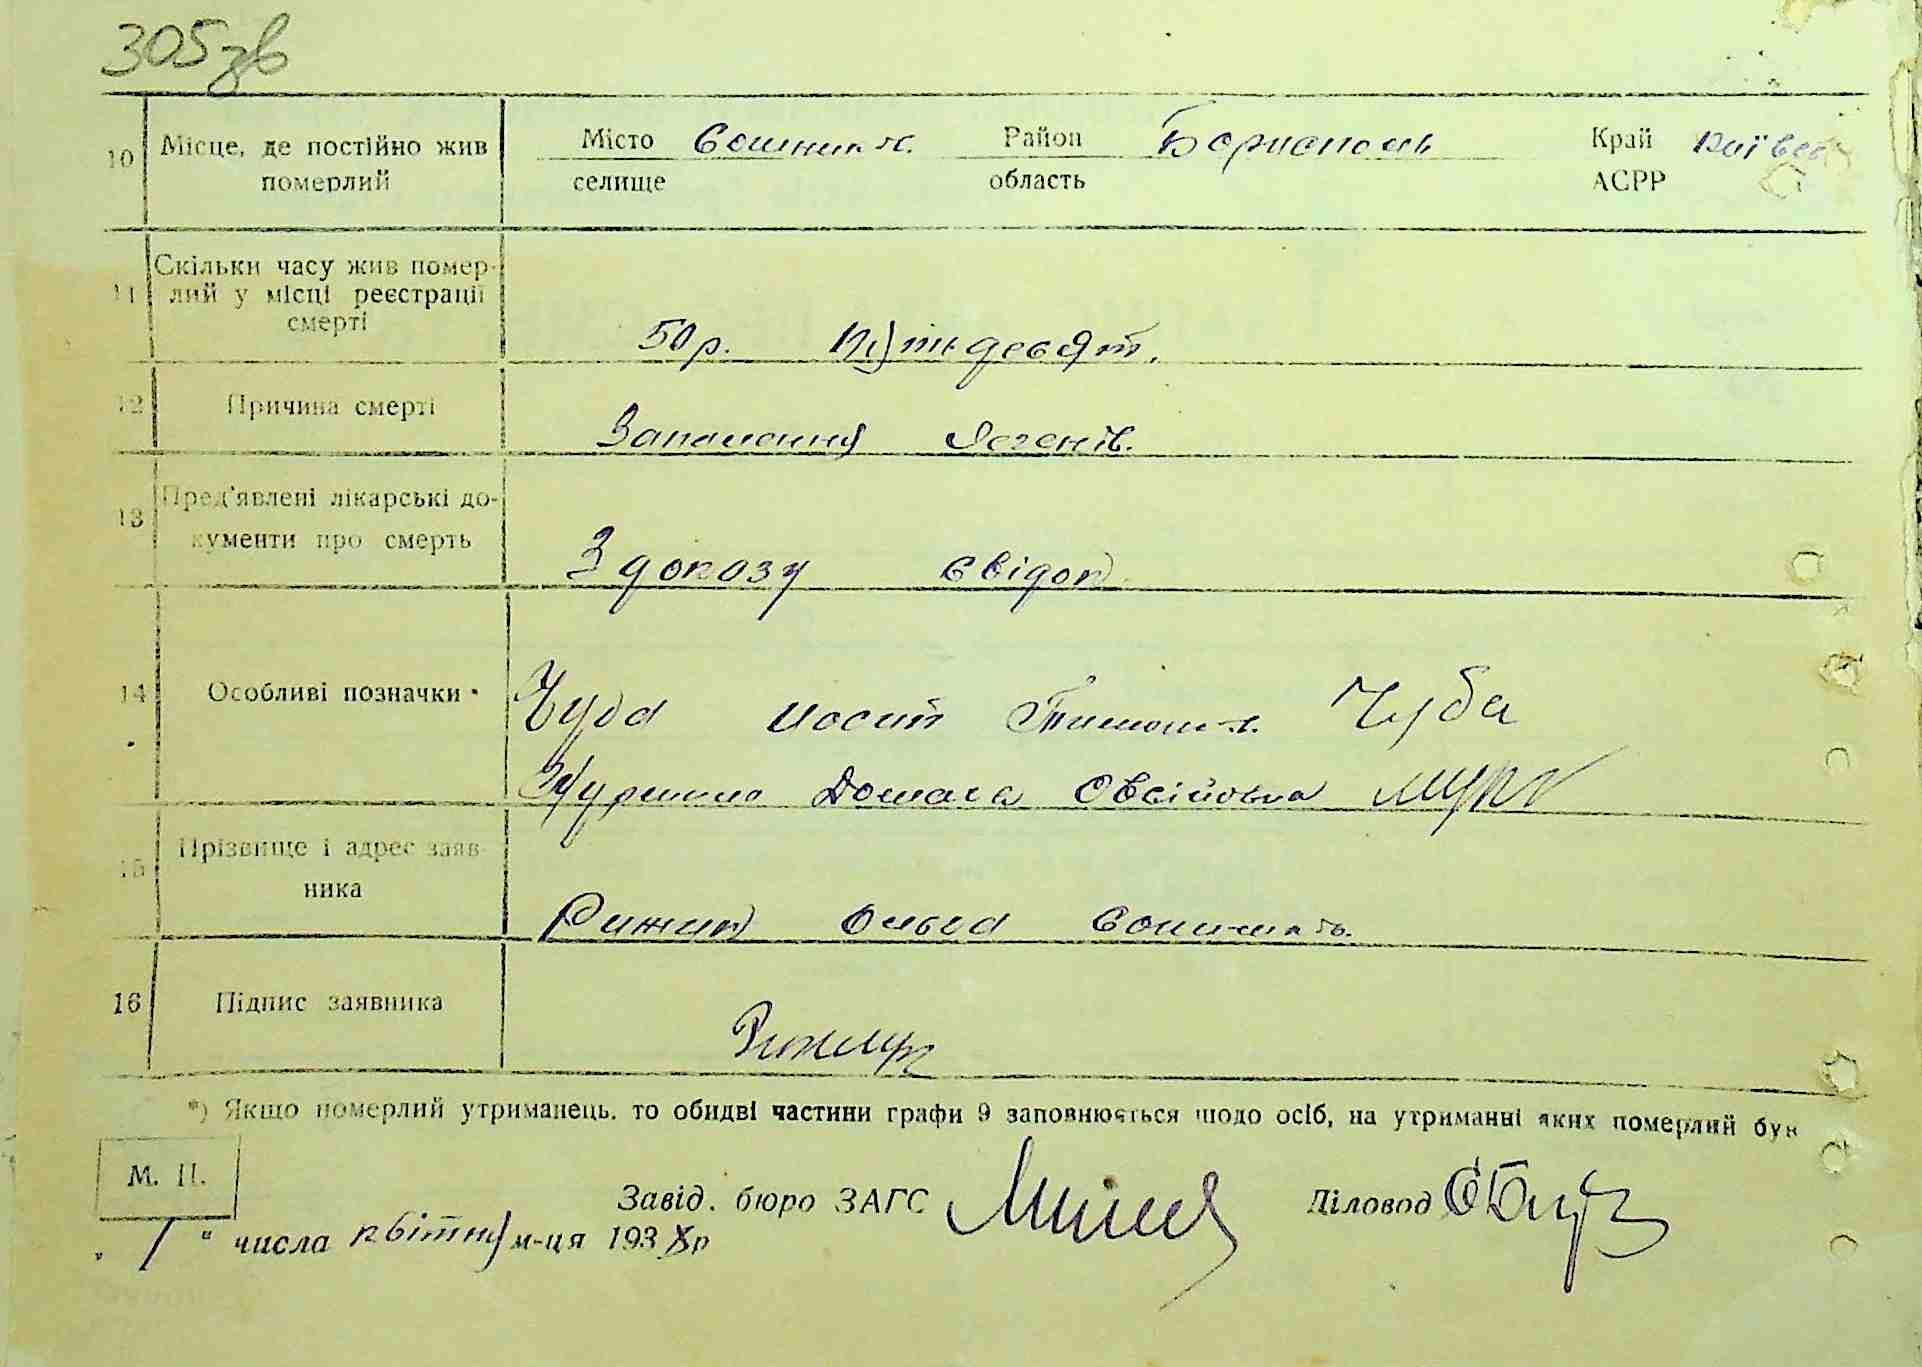 305зв
10 Місце, де постійно жив померлий Місто селище Сошників. Район область Бориспомь Край АСРР Київсь
11 Скільки часу жив помер-
лий у місці реєстрації
смерті
50р. Пятьдесят.
12 Причина смерті Запалення Легенів.
13 Пред'явлені лікарські до-
кументи про смерть
З доказу свідок
14 Особливі позначки Чуба Иосип Чуба
Домаха Овсійовна
15 Прізвище і адрес заяв-
ника
Рижик Ольга
16 Підпис заявника
*) Якщо померлий утриманець. то обидві частини графи 9 заповнюється щодо осіб, на утриманні яких померлий був
М. П.
Завід. бюро ЗАГС Діловод
„ 1 " числа квітня м-ця 193 р